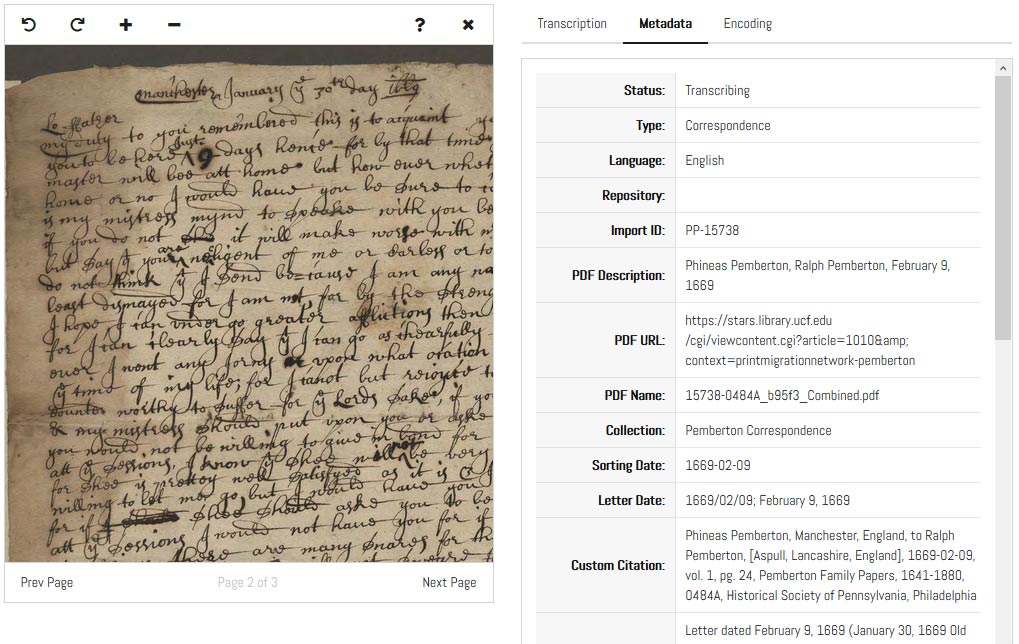 manchester January ye 30th day
Lo ffather
my duty to you remembered this is to acquaint
you to be here Just 9 days hence for by that time
master will bee att home but how ever whet
home or no I would have you be sure to
is my mistress mynd to speake with you
if you do not it will make worse with
but say yt you are negligent of me or carless or
do not think yt I send because I am any
least dismayed for I am not for by the streng
I hope I can under go greater afflictions then
for I can clearly say yt I can go as chearfully
ever I went any Jorny vpon what
ye time of my life for I canot but
counter worthy to suffer for ye Lords sake if
& my mistress should put vpon you or aske
you would not be willing to give in bond for
att ye sessions, I know yt shee will not be very
for shee is prettey well satisfyed as it is
willing to let me go but I would have you
for if shee should aske you to be
att ye sessions I would not have you for if
there are many snares for
Prev Page
Page 2 of 3
Next Page
Transcription Metadata Encoding
Status: Transcribing
Type: Correspondence
Language: English
Repository:
Import ID: PP-15738
PDF Description: Phineas Pemberton, Ralph Pemberton, February 9,
1669
PDF URL: https://stars.library.ucf.edu
/cgi/viewcontent.cgi?article=1010&amp;
context=printmigrationnetwork-pemberton
PDF Name: 15738-0484A_b95f3_Combined.pdf
Collection: Pemberton Correspondence
Sorting Date: 1669-02-09
Letter Date: 1669/02/09; February 9, 1669
Custom Citation: Phineas Pemberton, Manchester, England, to Ralph
Pemberton, [Aspull, Lancashire, England], 1669-02-09,
vol. 1, pg. 24, Pemberton Family Papers, 1641-1880,
0484A, Historical Society of Pennsylvania, Philadelphia
Letter dated February 9, 1669 (January 30, 1669 Old